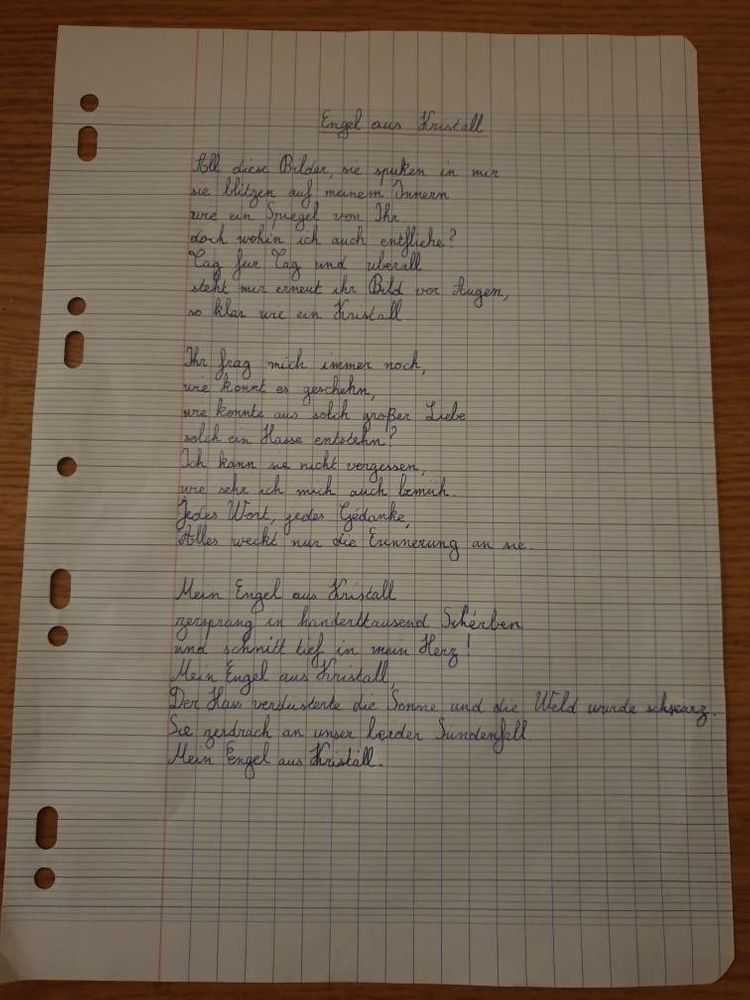 Engel aus Kristall
All diese Bilder, sie spuken in mir
sie blitzen auf meinem Innern
wie ein Spiegel von Ihr
doch wohin ich auch entfliehe?
Tag fur Tag und uberall
steht mir erneut ihr Bild vor Augen,
so klar wie ein Kristall.
Ihr frag mich immer noch,
wie konnt es geschehn,
wie konnte aus solch großer Liebe
solch ein Hasse entstehn?
Ich kann sie nicht vergessen,
wie sehr ich mich auch bemuh.
Jedes Wort, jedes Gedanke,
Alles weckt nur die Erinnerung an sie.
Mein Engel aus Kristall
zersprang in handerttausend Scherben
und schnitt tief in mein Herz!
Mein Engel aus Kristall,
Der Hass verdusterte die Sonne und die Weld wurde schwarz.
Sie zerdrach an unser beider Sundenfall
Mein Engel aus Kristall.